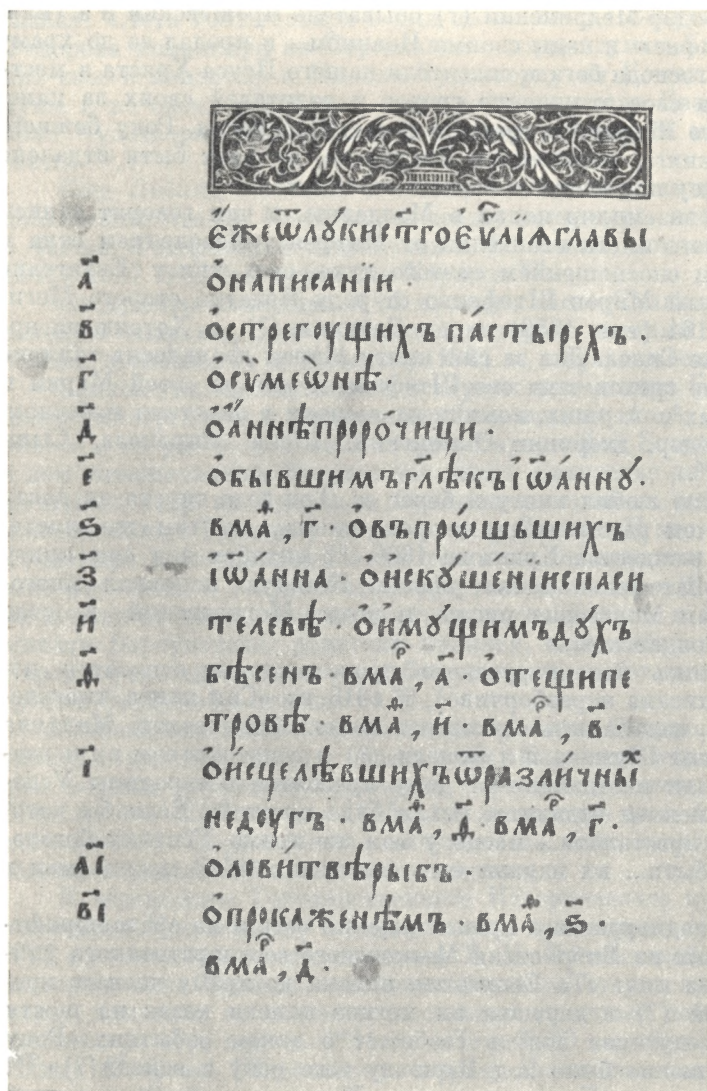 є҆́жеѿлꙋкист҃гоєѵⷢ҇лїѧглавы
а҃ ѡ҆написанїи ·
в҃ острегоущихъпа́стырехъ ·
г҃ осѵмеѡнѣ ·
д҃ о҆́аннѣпроро́чици ·
є҃ ѡ҆бывшимъгл҃ѣкъїѡа́ннꙋ ·
ѕ҃ вмаⷴ҇, г҃ · ѡ҆въпрѡ́шьшихъ
з҃ їѡ҆анна · ѡ҆искꙋшенїиспаси
и҃ телевѣ · ѡ҆имꙋ́щимъдꙋхъ
ѳ҃ бѣсенъ · вмаⷬ҇, а҃ · ѡ҆тещипе
тровѣ · вмаⷴ҇, и҃ · вмаⷬ҇, в҃ ·
і҃ ѡ҆исцелѣвшихъѿразли́чныⷯ
недоугъ · вмаⷴ҇, д҃ · вмаⷬ҇, г҃ ·
а҃і ѡ҆ловитвѣрыбъ ·
в҃і ѡ҆прокаженѣмъ · вмаⷴ҇, ѕ҃ ·
вмаⷬ҇, д҃ ·